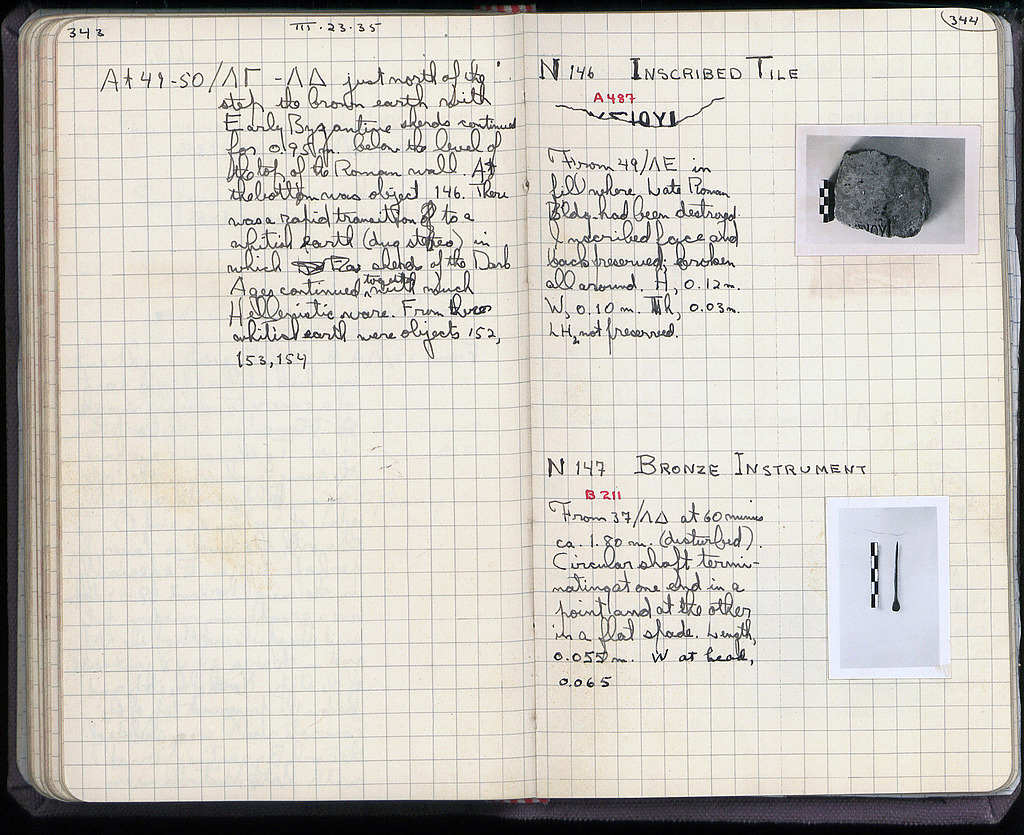 343
III·23·35
At 49-50/ΛΓ-ΛΔ just north of the
step the brown earth with
Early Byzantine sherds continued
for 0.95 m. below the level of
the top of the Roman wall. At
the bottom was object 146. There
was a rapid transition to a
whitish earth (dug stereo) in
which sherds of the Dark
Ages continued together with much
Hellenistic ware. From
whitish earth were objects 152,
153, 154
344
N 146 INSCRIBED TILE
A 487
From 49/ΛΕ in
fill where Late Roman
Bldg. had been destroyed.
Inscribed face and
back preserved; broken
all around. H, 0.12 m.
W, 0.10 m. Th, 0.03 m.
LH, not preserved.
N 147 BRONZE INSTRUMENT
B 211
From 37/ΛΔ at 60 minus
ca. 1.80 m. (disturbed).
Circular shaft termi-
nating at one end in a
point and at the other
in a flat spade. Length,
0.055 m. W at head,
0.065